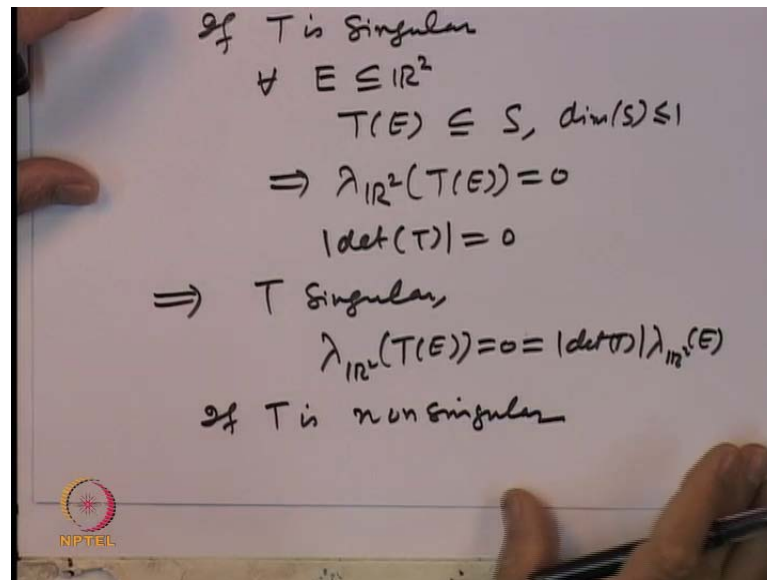 If T is Singular
∀ E ⊆ ℝ²
T(E) ⊆ S, dim(S) ≤ 1
⟹ λ_ℝ²(T(E)) = 0
|det(T)| = 0
⟹ T Singular,
λ_ℝ²(T(E)) = 0 = |det(T)| λ_ℝ²(E)
If T is nonsingular
NPTEL